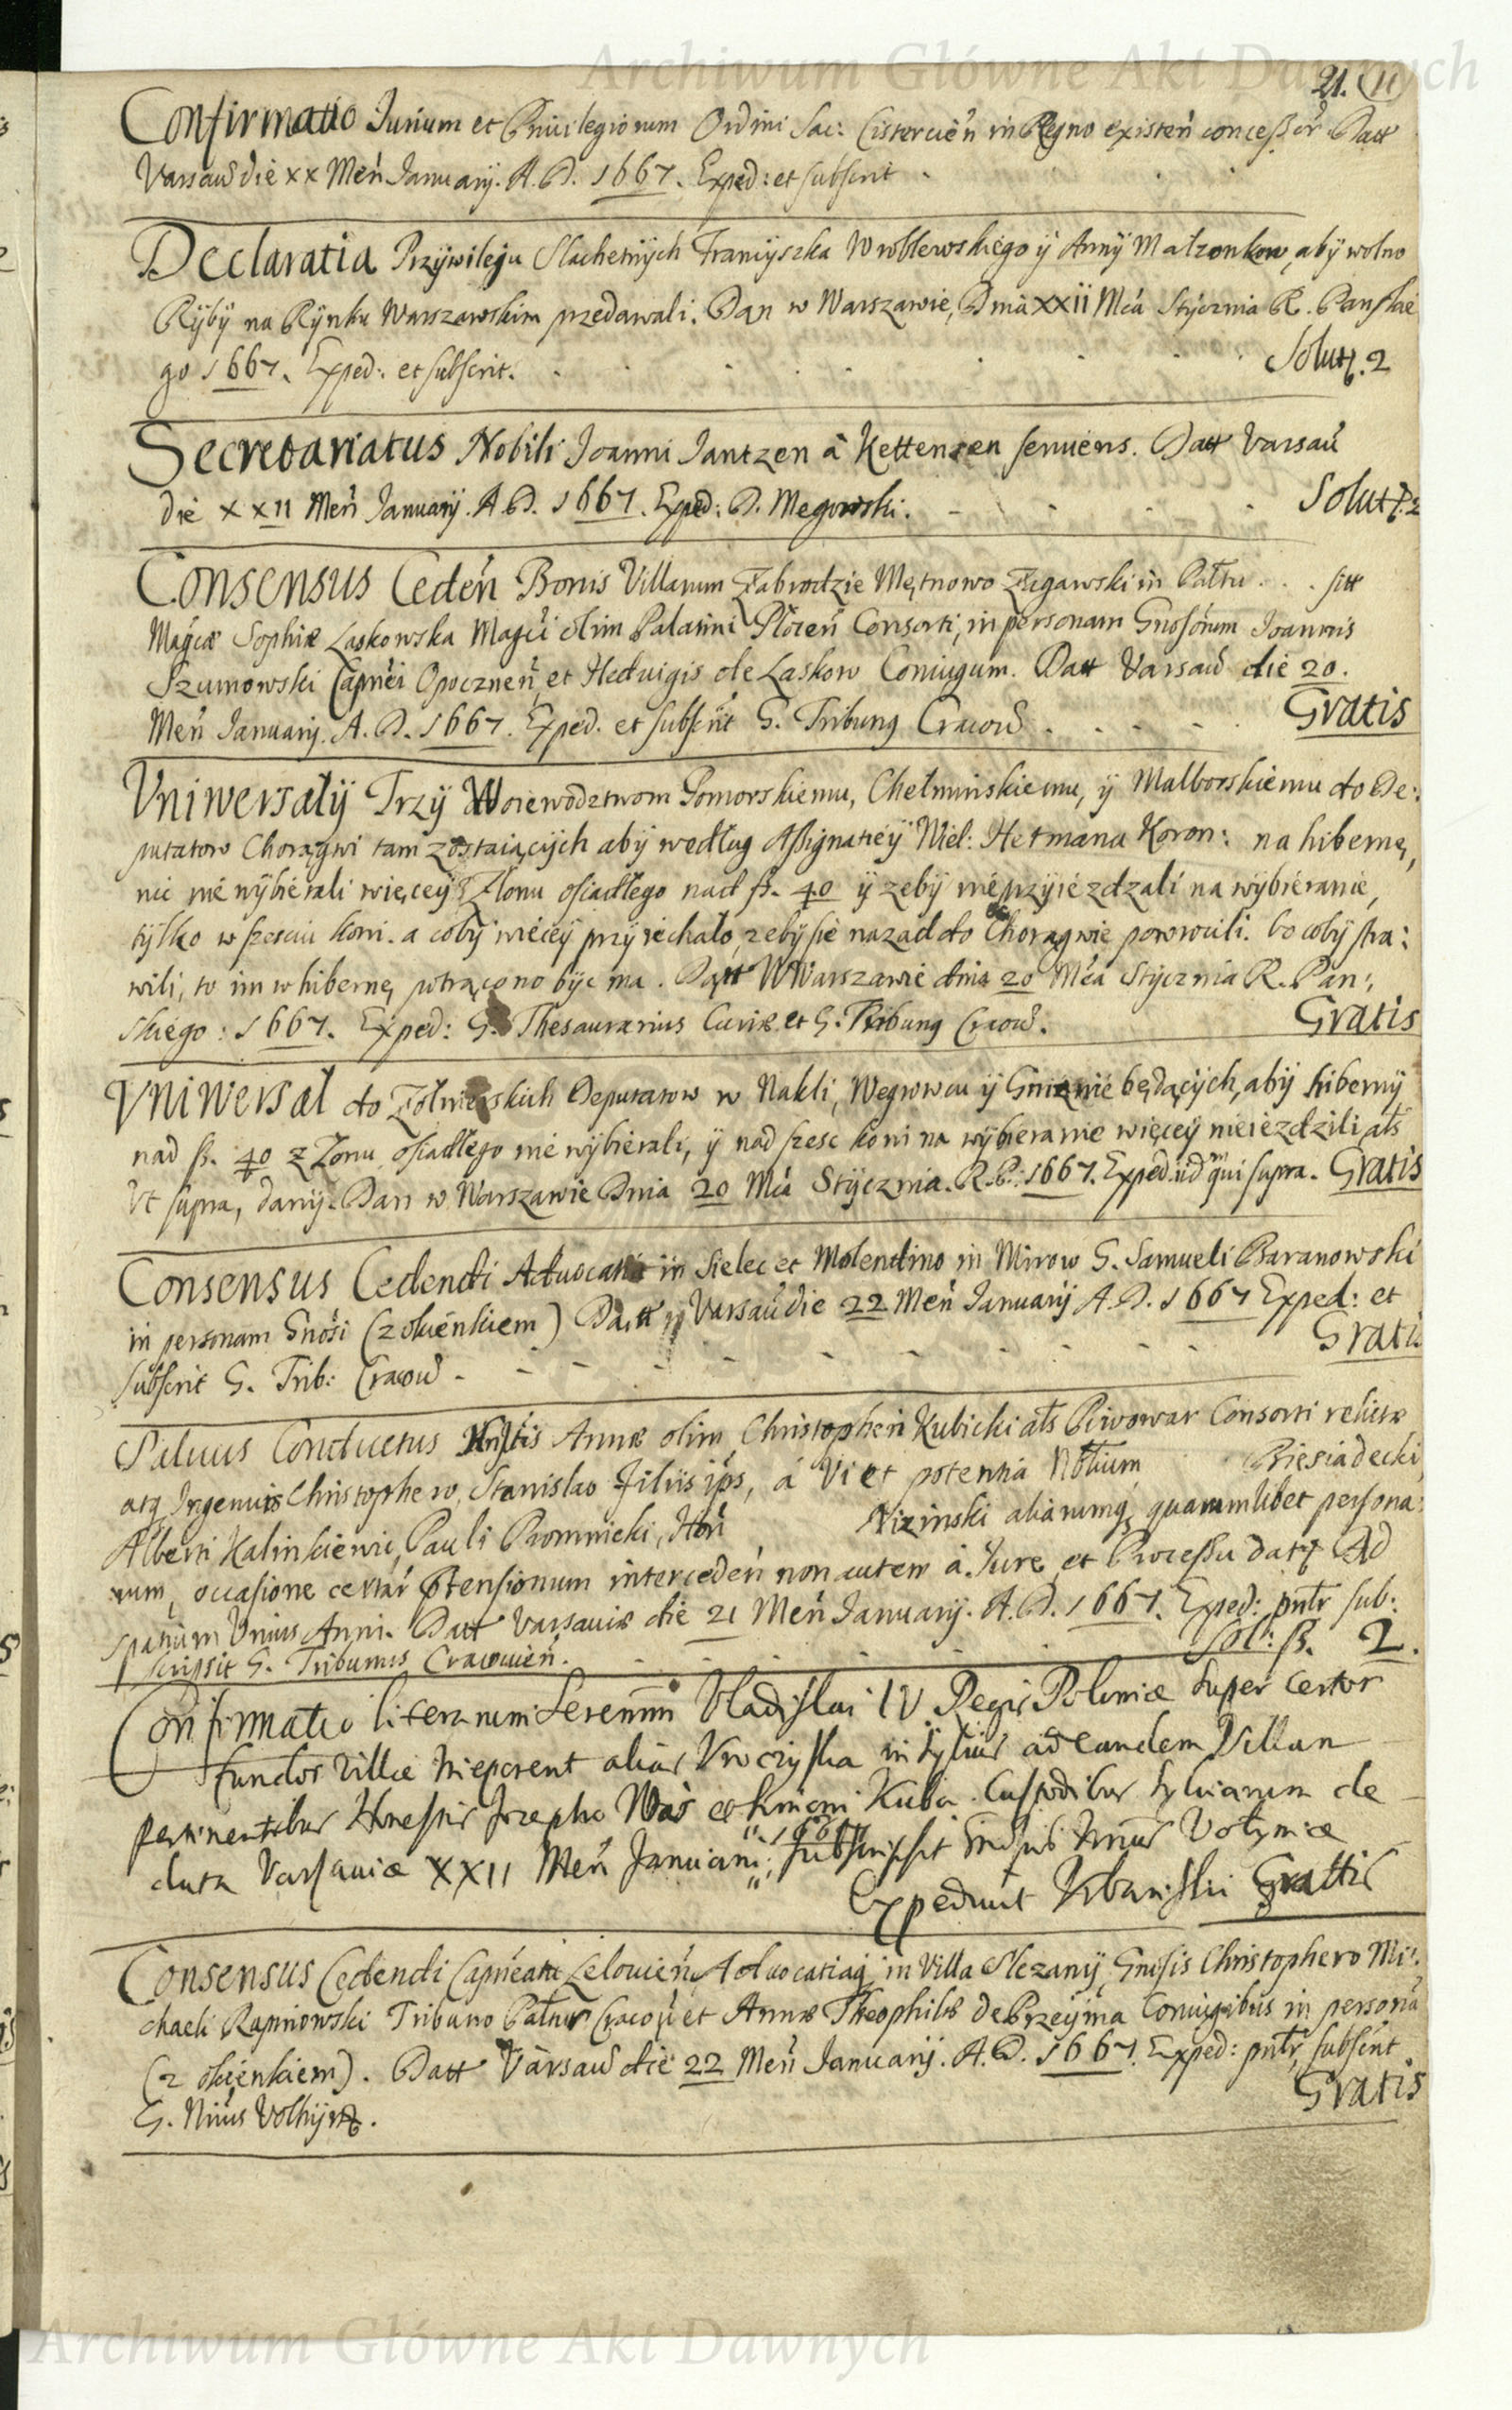 Archiwum Główne Akt Dawnych
21. 11
Confirmatio Jurium et Privilegiorum Ordini Sac: Cistercień in Regno existeń conceßor̃ Datt
Varsav̄ die xx Meń January. A. D. 1667. Exped: et subscrit .
Declaratia Przywileju Slachetnych Franciyszka Wroblewskiego ÿ Anny Małzonkow, aby wolno
Ryby na Rynku Warszawskim przedawali. Dan w Warszawie, Dnia xxii Mca Stycznia R. Panskie
go 1667. Exped: et subscrit. Solut f. 2
Secretariatus Nobili Joanni Jantzen à Kettenzen serviens. Datt Varsav̄
die xxii Meń January. A D. 1667. Exped: D. Megowski. Solut f. 2
Consensus Cedeń Bonis Villarum Zabrodzie Mętnowo Zegawski in Pałtu . . sitt
Magcæ Sophiæ Laskowska Magci olim Palatini Płoceń Consorti, in personam Gnosorum Joannis
Szumowski Capnei Opoczneń et Hedvigis de Laskow Coniugum. Datt Varsav̄ die 20.
Meń January. A. D. 1667. Exped. et subscrit G. Tribunꝯ Cracov̄ . Gratis
Vniwersały Trzy Woiewodztwom Pomorskiemu, Chełminskiemu, ÿ Malborskiemu do De:
putatow Chorągwi tam zostaiących aby według Aßignatiey Wiel: Hetmana Koron: na hibernę,
nic nie wybierali więcey z Łonu osiadłego nad fl. 40 ÿ zeby nie przyiezdzali na wybieranie,
tylko w szesciu koni. a coby więcey przyiechało, zeby sie nazad do Chorągwie powrocili. bo coby stra:
wili, to im w hibernę potrącono byc ma. Datt W Warszawie dnia 20 Mca Stycznia R. Pan:
skiego: 1667. Exped: G. Thesaurarius Curiæ et G. Tribunꝯ Cracov̄. Gratis
Vniwersał do Zołnierskich Deputatow w Nakli, Wegrowcu ÿ Gnieznie będących, aby hiberny
nad fl. 40 z Łonu osiadłego nie wybierali, ÿ nad szesc koni na wybieranie więcey nieiezdzili ałs
Vt supra, dany. Dan w Warszawie Dnia 20 Mca Stycznia. R. P. 1667. Exped. qui supra. Gratis
Consensus Cedendi Advocatia in Sielec et Molendino in Mirow G. Samueli Baranowski
in personam Gnosi (z okienkiem) Datt Varsav̄ die 22 Meń January A. D. 1667 Exped: et
subscrit G. Trib: Cracov̄ . Gratis
Salvus Conductus Hnstis Annæ olim Christopheri Kubicki ałs Piwowar Consorti relictæ
atq Ingenuis Christophero, Stanislao Filiis ips, á Vi et potentia Nobilium Biesiadecki
Alberti Kalinkiewic, Pauli Promnicki, Hoń Nizinski aliarumq quarumlibet persona:
rum, occasione certar̃ prætensionum intercedeń non autem à Jure et Proceßu datꝯ Ad
spatium Unius Anni. Datt Varsaviæ die 21 Meń January. A. D. 1667. Exped: pntr sub:
scripsit G. Tribunus Cracovień. Sol: fl. 2.
Confirmatio literarum Serenmi Vladislai IV Regis Poloniæ super certos
fundos villæ Nieporent alias Vroczyska in sylvis ad eandem Villam
pertinentibus Honestis Josepho Wąs et Simoni Kuba Custodibus sylvarum de
data Varsaviæ XXII Meń Januarii 1667 subscripsit Gnosus Nrius Volyniæ
Expedivit Urbanski Grattis
Consensus Cedendi Capneatu Lelovień, Advocatiaq in Villa Slezany Gnosis Christophero Mi:
chaeli Rupniowski Tribuno Pałtus Cracov̄ et Annæ Theophilæ de Przeyma Coniugibus in persona
(z okienkiem). Datt Varsav̄ die 22 Meń January. A. D. 1667. Exped: pntr, subscrit
G. Nrius Volhyniæ. Gratis
Archiwum Główne Akt Dawnych